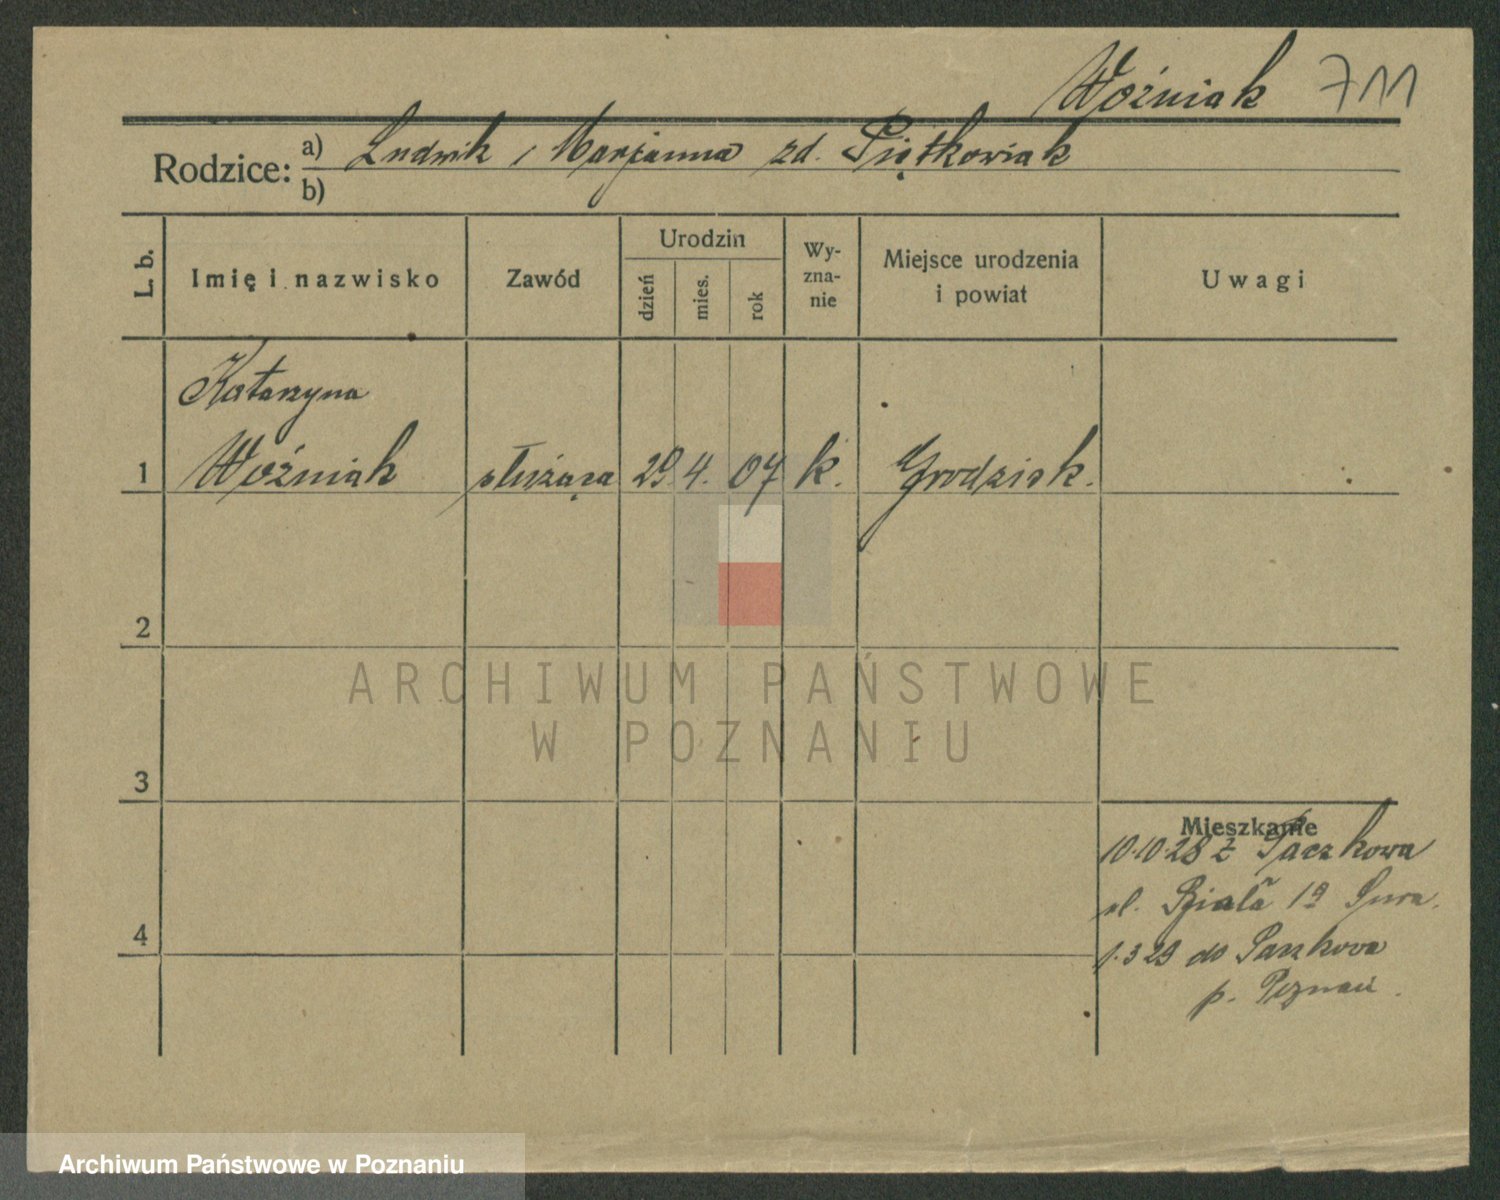 Woźniak 711
Rodzice: a) Ludwik i Marjanna zd. Piątkowiak
b)
L. b.
Imię i nazwisko
Zawód
Urodzin
dzień
mies.
rok
Wy-
zna-
nie
Miejsce urodzenia
i powiat
Uwagi
Katarzyna
1 Woźniak służąca 29. 4. 07 k. Grodzisk.
2
3
4
Mieszkanie
10.10.28 z Paczkowa
ul. Biała 19
1.3 29 do Paczkowa
p. Poznań.
ARCHIWUM PAŃSTWOWE
W POZNANIU
Archiwum Państwowe w Poznaniu